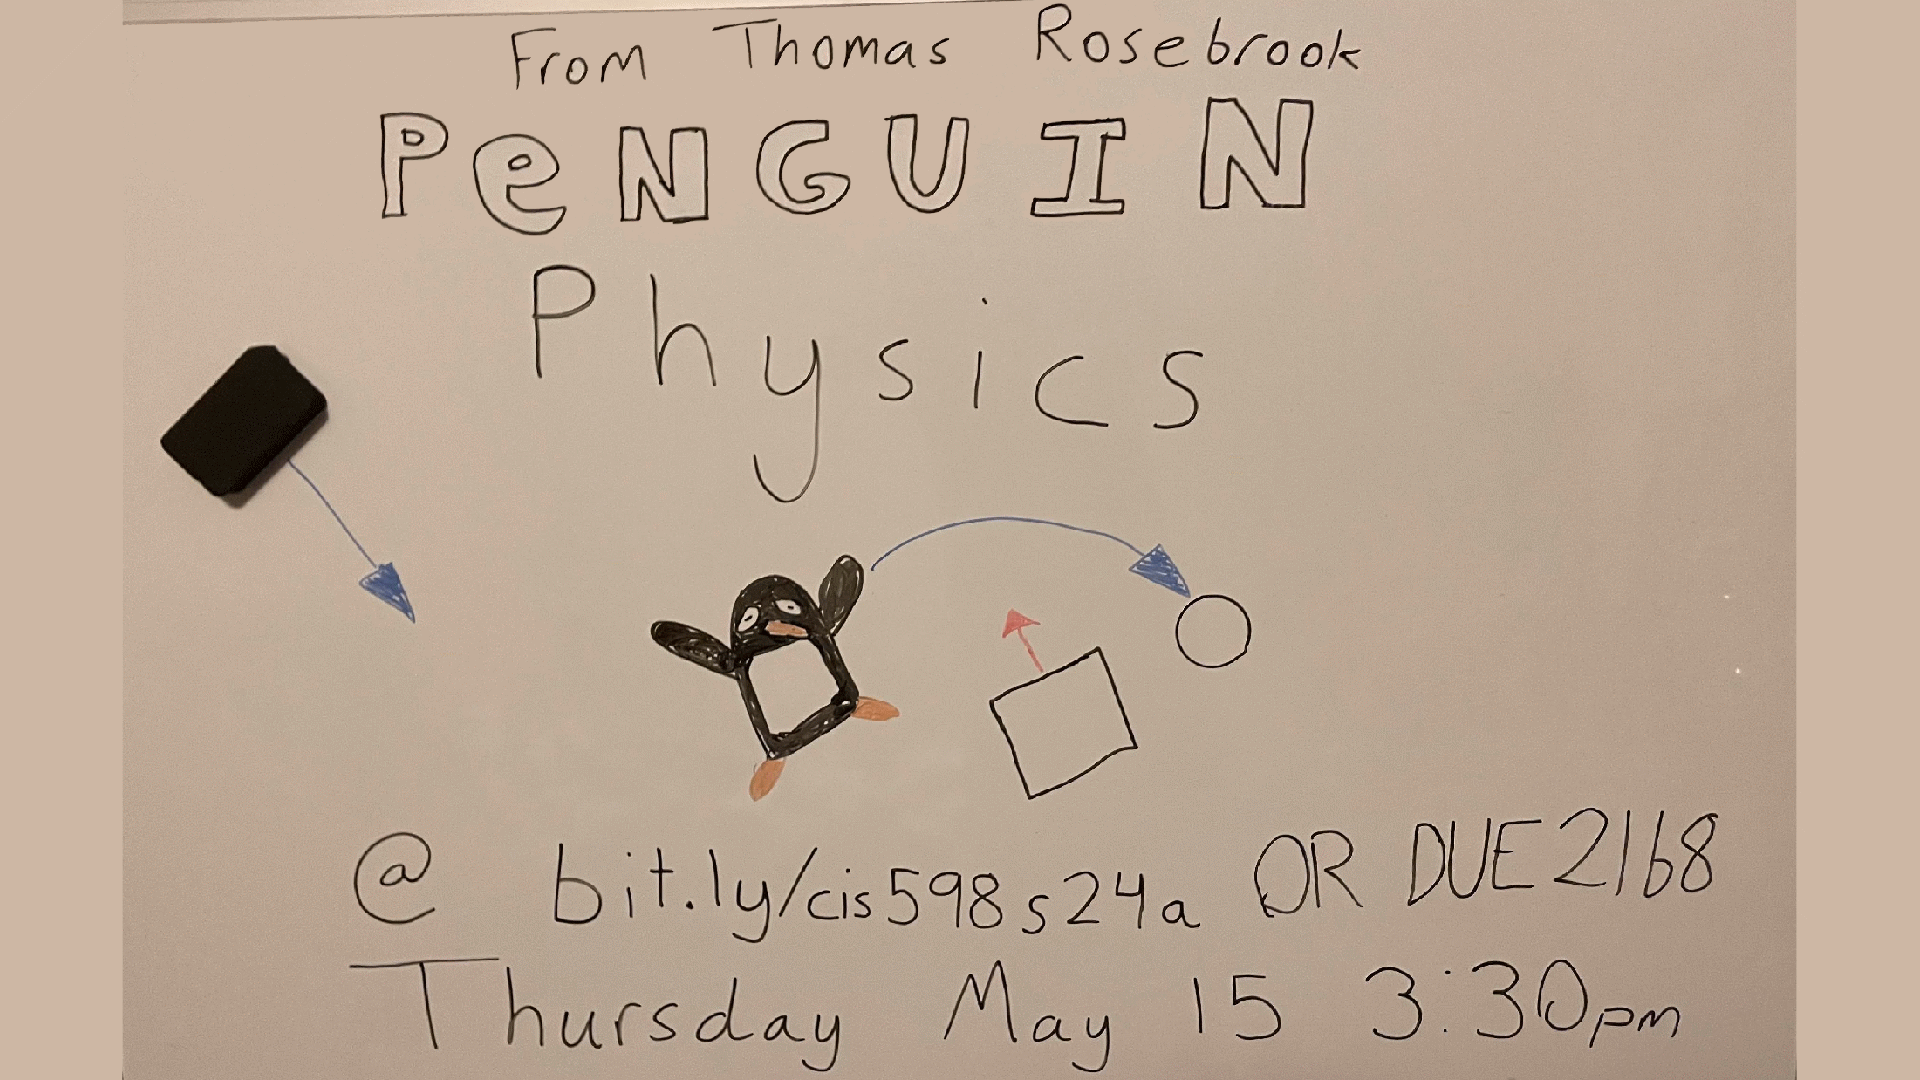 From Thomas Rosebrook
PeNGUIN
Physics
@ bit.ly/cis598s24a OR DUE2168
Thursday May 15 3:30pm